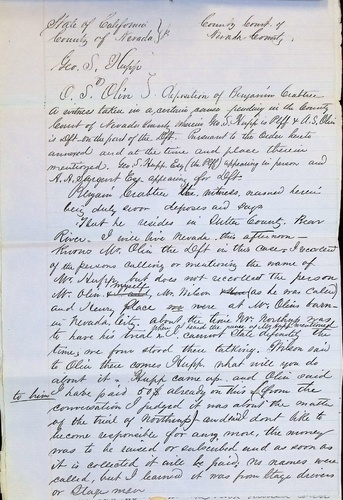 State of California } ss
County of Nevada
County Court of
Nevada County.
Geo. S. Hupp
vs
O. S. Olin } Deposition of Benjamin Crabtree
A witness taken in a certain cause pending in the County
Court of Nevada County wherein Geo. S. Hupp is Plff & A. S. Olin
is Deft on the part of the Deft. Pursuant to the Order hereto
annexed and at the time and place therein
mentioned. Geo S. Hupp Esq (the Plff) appearing in person and
A. A. Sargent Esq. appearing for Deft.
Benjamin Crabtree the witness named herein
being duly sworn deposes and says
That he resides in Sutter County, Bear
River. I will leave Nevada this afternoon
Knows Mr. Olin the Deft in this case, I recollect
of the persons calling or mentioning the name of
Mr. Hupp, but does not recollect the person
Mr. Olin, myself Mr. Wilson as he was called
and Henry Place were at Mr. Olin's barn
in Nevada City about the time Mr. Northup was
to have his trial cannot state definitely the
time, we four stood there talking. Wilson said
to Olin there comes Hupp what will you do
about it. Hupp came up, and Olin said
to him I have paid 50$ already on this (from the
conversation I judged it was about the matter
of the trial of Northup) and I don't like to
become responsible for any more, the money
was to be raised or subscribed and as soon as
it is collected it will be paid, no names were
called, but I learned it was from Stage drivers
or Stage men